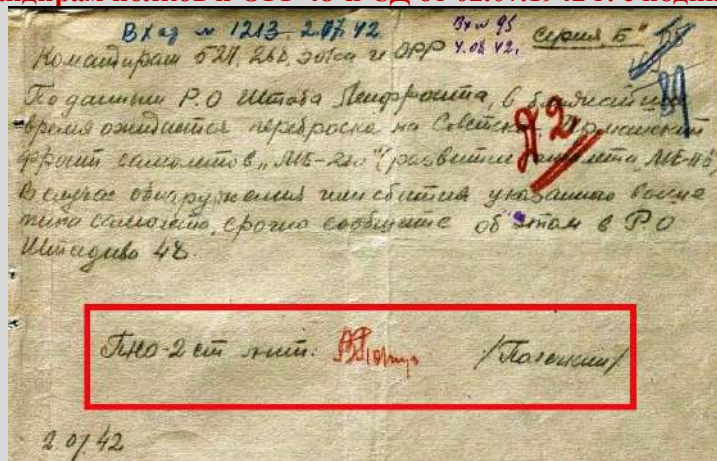 командирам полков и ОРР 48-й СД от 02.07.1942 г. с подпи
Вход № 1213 2.07.42
Вх № 95
4.07.42.
Серия "Б"
Командирам 521, 268, и ОРР
По данным Р.О Штаба Ленфронта, в ближайшее
время ожидается переброска на Советско-Германский
фронт самолетов „МЕ-210" (развитие самолета „МЕ-110")
В случае обнаружения или сбития указанного выше
типа самолета, срочно сообщите об этом в Р.О
Штадива 48.
ПНО-2 ст лейт.
2.07.42